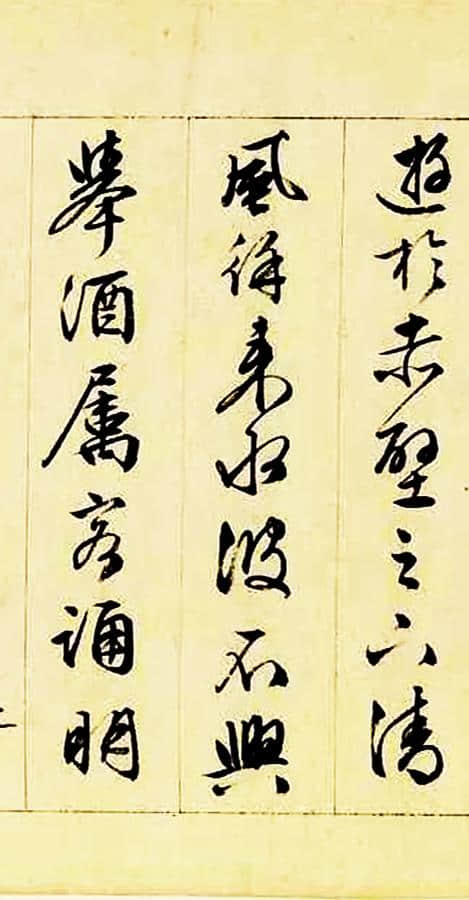 遊於赤壁之下清
風徐來水波不興
舉酒属客誦明